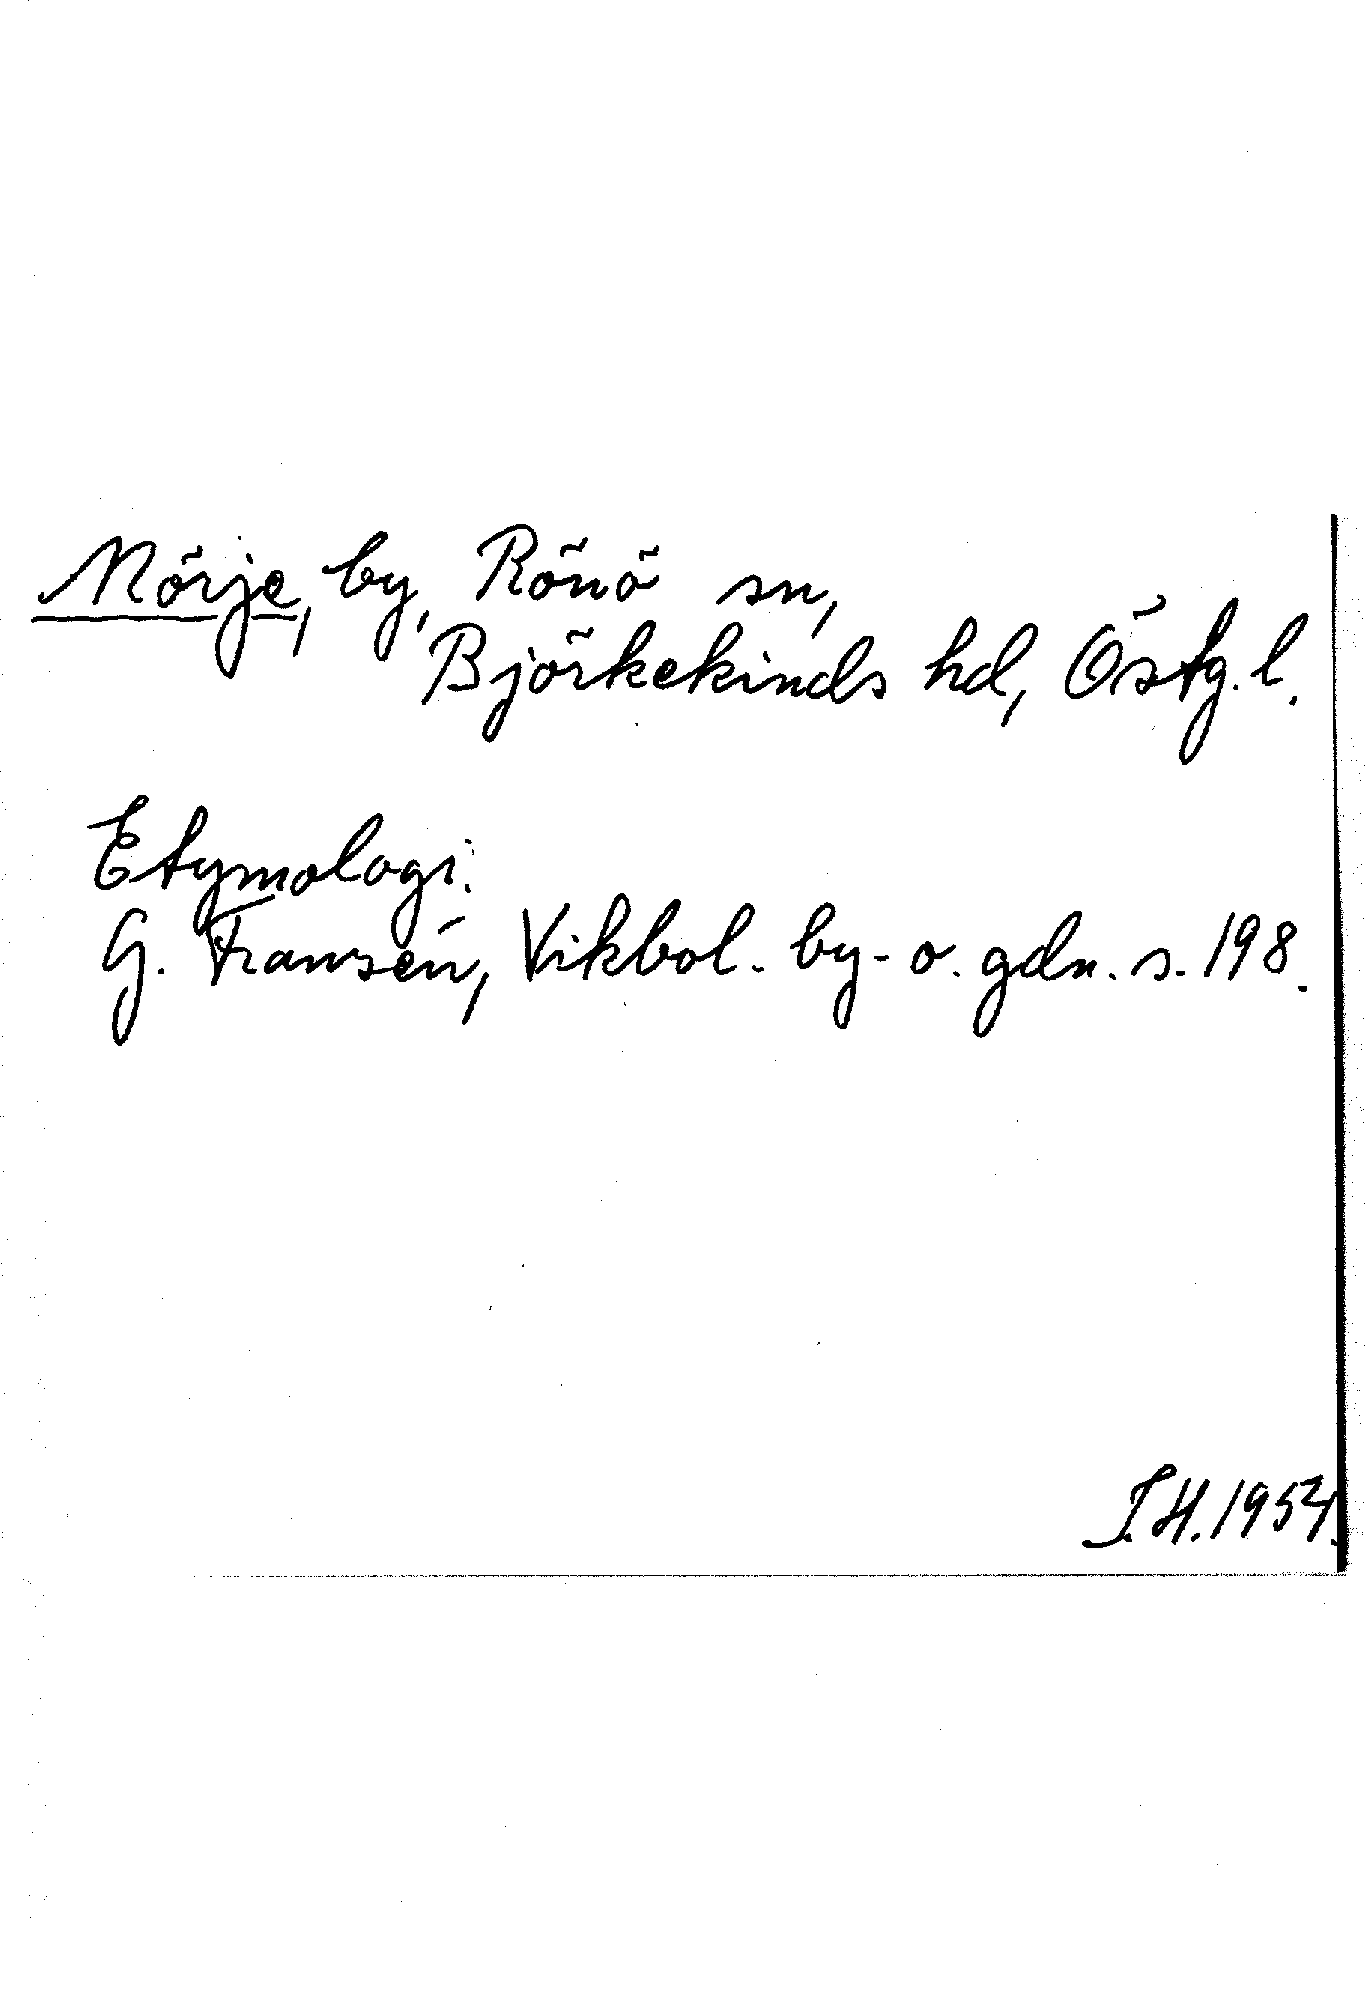 Mörje, by, Rönö sn,
Björkekinds hd, Östg. l.
Etymologi:
G. Franzén, Vikbol. by- o. gdn. s. 198.
I.H. 1954.